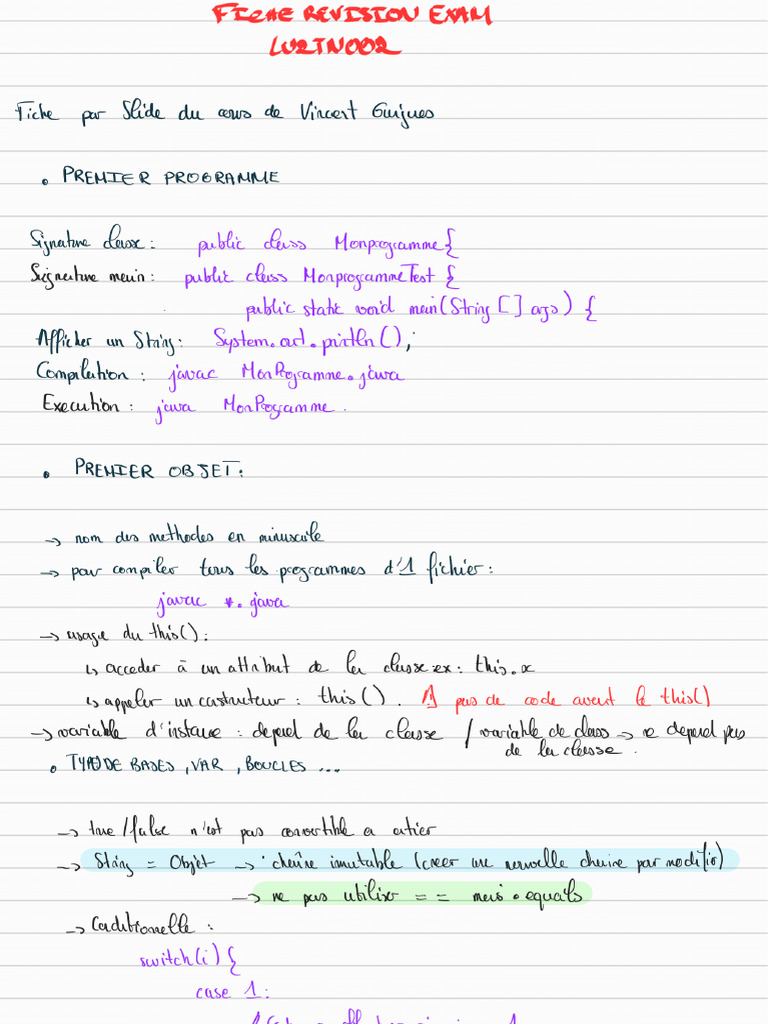 FICHE REVISION EXAM
LU2IN002
Fiche par Slide du cours de Vincent Guigues
• PREMIER PROGRAMME
Signature classe : public class Monprogramme {
Signature main : public class MonprogrammeTest {
public static void main(String [] ags) {
Afficher un String : System.out.println();
Compilation : javac MonProgramme.java
Execution : java MonProgramme.
• PREMIER OBJET :
-> nom des methodes en minuscule
-> pour compiler tous les programmes d'1 fichier :
javac *.java
-> usage du this() :
↳ acceder à un attribut de la classe ex : this.x
↳ appeler un constructeur : this(). ⚠ pas de code avant le this()
-> variable d'instance : depend de la classe / variable de class -> ne depend pas
de la classe.
• TYPE DE BASES, VAR, BOUCLES ...
-> true/false n'est pas convertible en entier
-> String = Objet -> chaîne immutable (creer une nouvelle chaine par modifie)
-> ne pas utiliser == mais .equals
-> Conditionnelle :
switch(i) {
case 1: